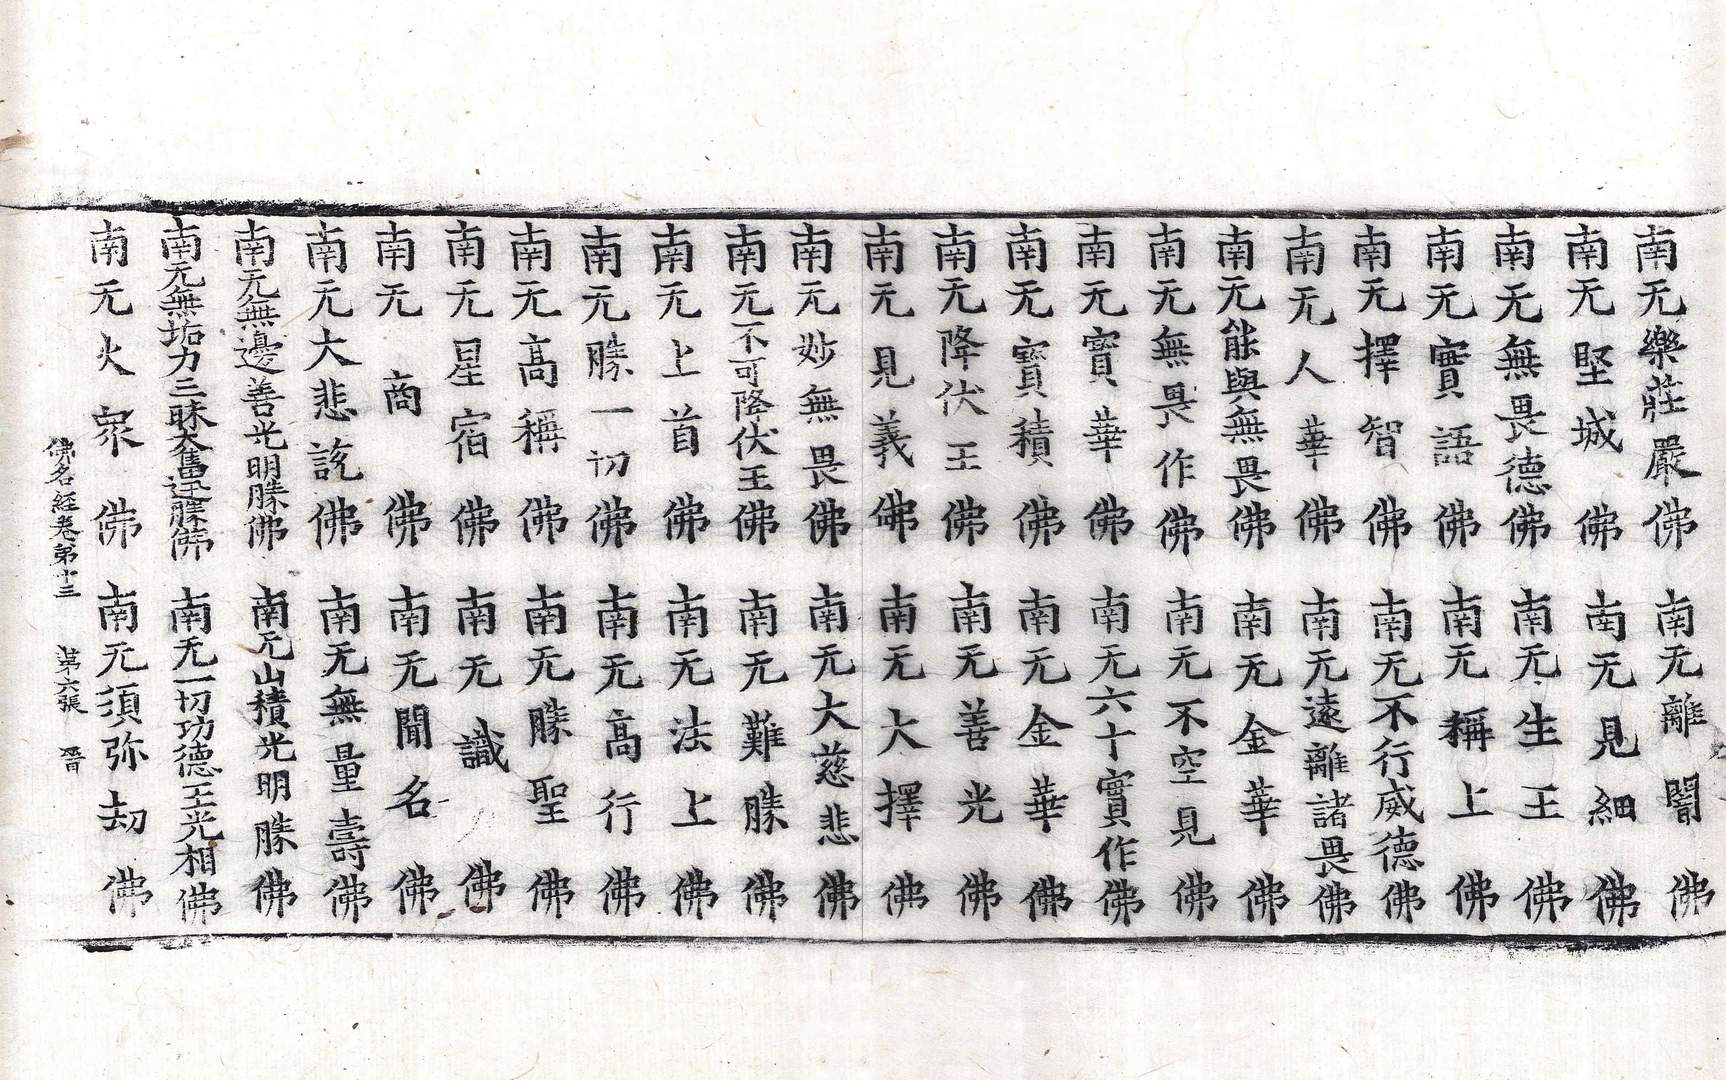 南无樂莊嚴佛　南无離闇佛
南无堅城佛　南无見細佛
南无無畏德佛　南无生王佛
南无實語佛　南无稱上佛
南无擇智佛　南无不行威德佛
南无人華佛　南无遠離諸畏佛
南无能與無畏佛　南无金華佛
南无無畏作佛　南无不空見佛
南无寶華佛　南无六十寶作佛
南无寶積佛　南无金華佛
南无降伏王佛　南无善光佛
南无見義佛　南无大擇佛
南无妙無畏佛　南无大慈悲佛
南无不可降伏王佛　南无難勝佛
南无上首佛　南无法上佛
南无勝一切佛　南无高行佛
南无高稱佛　南无勝聖佛
南无星宿佛　南无識佛
南无商佛　南无聞名佛
南无大悲說佛　南无無量壽佛
南无無邊善光明勝佛　南无山積光明勝佛
南无無垢力三昧大奮迅勝佛　南无一切功德王光相佛
南无火眾佛　南无須弥劫佛
佛名經卷第十三　第六張